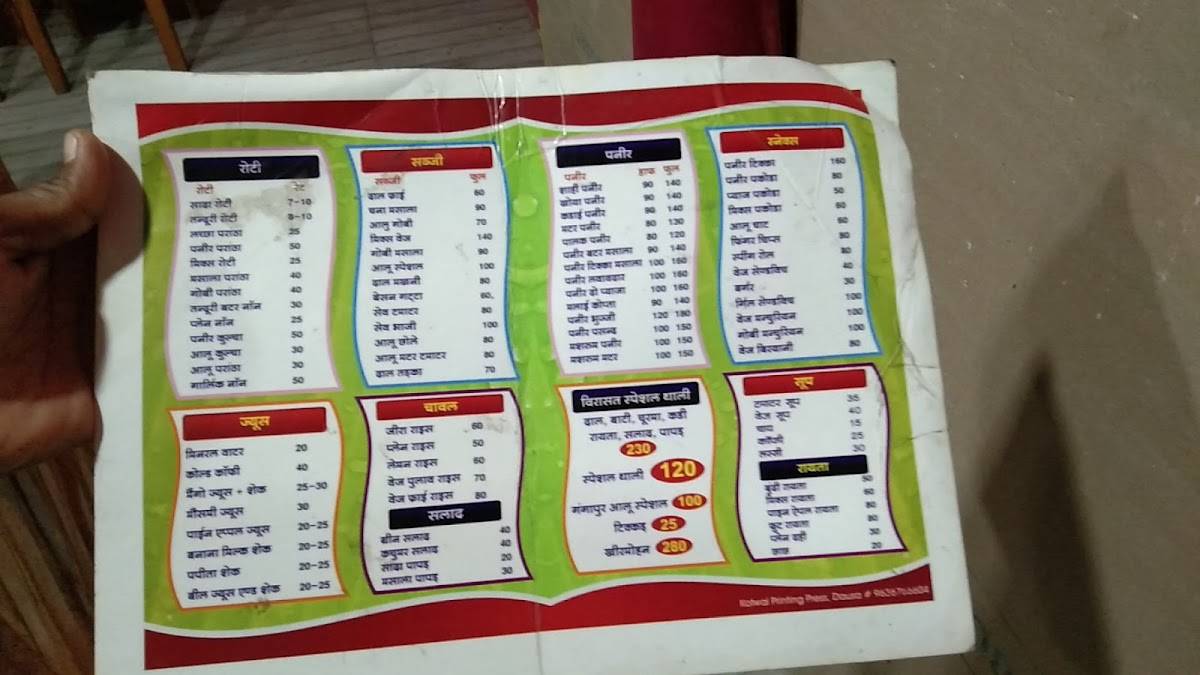 रोटी
रोटी रेट
सादा रोटी 7-10
तन्दूरी रोटी 8-10
लच्छा परांठा 25
पनीर परांठा 50
मिक्स रोटी 25
मसाला परांठा 40
गोबी परांठा 40
तन्दूरी बटर नॉन 30
प्लेन नॉन 25
पनीर कुल्चा 50
आलू कुल्चा 30
आलू परांठा 30
गार्लिक नॉन 50
सब्जी
सब्जी फुल
दाल फ्राई 60
चना मसाला 90
आलु गोबी 70
मिक्स वेज 140
गोबी मसाला 90
आलू स्पेशल 100
दाल मखनी 80
बेसन गट्टा 60
सेव टमाटर 80
सेव भाजी 100
आलू छोले 80
आलू मटर टमाटर 80
दाल तड़का 70
पनीर
पनीर हाफ फुल
शाही पनीर 90 140
खोया पनीर 90 140
कडाई पनीर 90 140
मटर पनीर 80 130
पालक पनीर 80 120
पनीर बटर मसाला 90 140
पनीर टिक्का मसाला 100 160
पनीर लवाबदार 100 160
पनीर दो प्याजा 100 160
मलाई कोप्ता 90 140
पनीर भुज्जी 120 180
पनीर पसन्द 100 150
मशरुम पनीर 100 150
मशरुम मटर 100 150
स्नेक्स
पनीर टिक्का 160
पनीर पकोडा 80
प्याज पकोडा 50
मिक्स पकोडा 60
आलू चाट 60
फिंगर चिप्स 80
स्प्रींग रोल 80
वेज सेण्डविच 40
बर्गर 30
ग्रिल सेण्डविच 100
वेज मन्चुरियन 100
गोबी मन्चुरियन 100
वेज बिरयानी 80
ज्यूस
मिनरल वाटर 20
कोल्ड कॉफी 40
मैंगो ज्यूस + शेक 25-30
मौसमी ज्यूस 30
पाईन एप्पल ज्यूस 20-25
बनाना मिल्क शेक 20-25
पपीता शेक 20-25
बील ज्यूस एण्ड शेक 20-25
चावल
जीरा राइस 60
प्लेन राइस 50
लेमन राइस 60
वेज पुलाव राइस 70
वेज फ्राई राइस 80
सलाद
ग्रीन सलाद 40
कचुमर सलाद 40
सादा पापड़ 20
मसाला पापड़ 30
विरासत स्पेशल थाली
दाल, बाटी, चूरमा, कडी
रायता, सलाद, पापड़
230
स्पेशल थाली 120
गंगापुर आलू स्पेशल 100
टिक्कड़ 25
खीरमोहन 280
सूप
टमाटर सूप 35
वेज सूप 40
चाय 15
कॉफी 25
लस्सी 30
रायता
बूंदी रायता 50
मिक्स रायता 60
पाइन ऐपल रायता 80
फ्रूट रायता 80
प्लेन दही 30
छाछ 20
Kotwal Printing Press, Dausa #